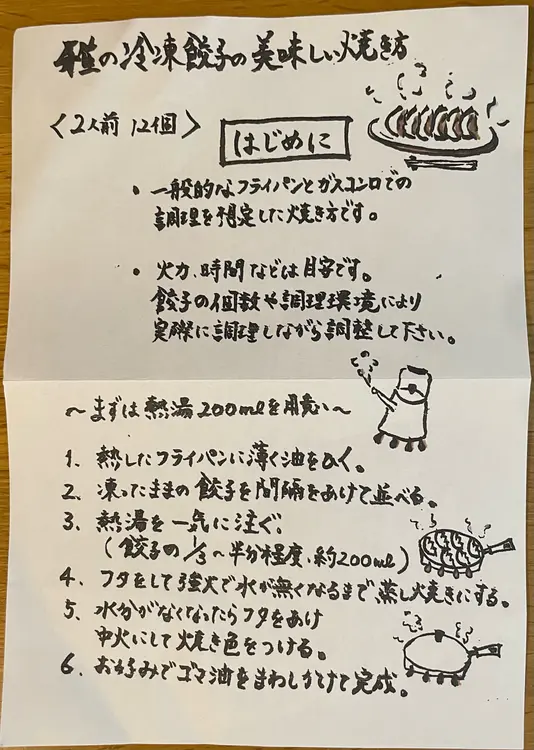 雅の冷凍餃子の美味しい焼き方
〈2人前 12個〉
はじめに
・一般的なフライパンとガスコンロでの
調理を想定した焼き方です。
・火力、時間などは目安です。
餃子の個数や調理環境により
実際に調理しながら調整して下さい。
〜まずは熱湯200mlを用意い〜
1. 熱したフライパンに薄く油をひく。
2. 凍ったままの餃子を間隔をあけて並べる。
3. 熱湯を一気に注ぐ。
(餃子の1/3〜半分程度、約200ml)
4. フタをして強火で水が無くなるまで蒸し焼きにする。
5. 水分がなくなったらフタをあけ
中火にして焼き色をつける。
6. お好みでゴマ油をまわしかけて完成。